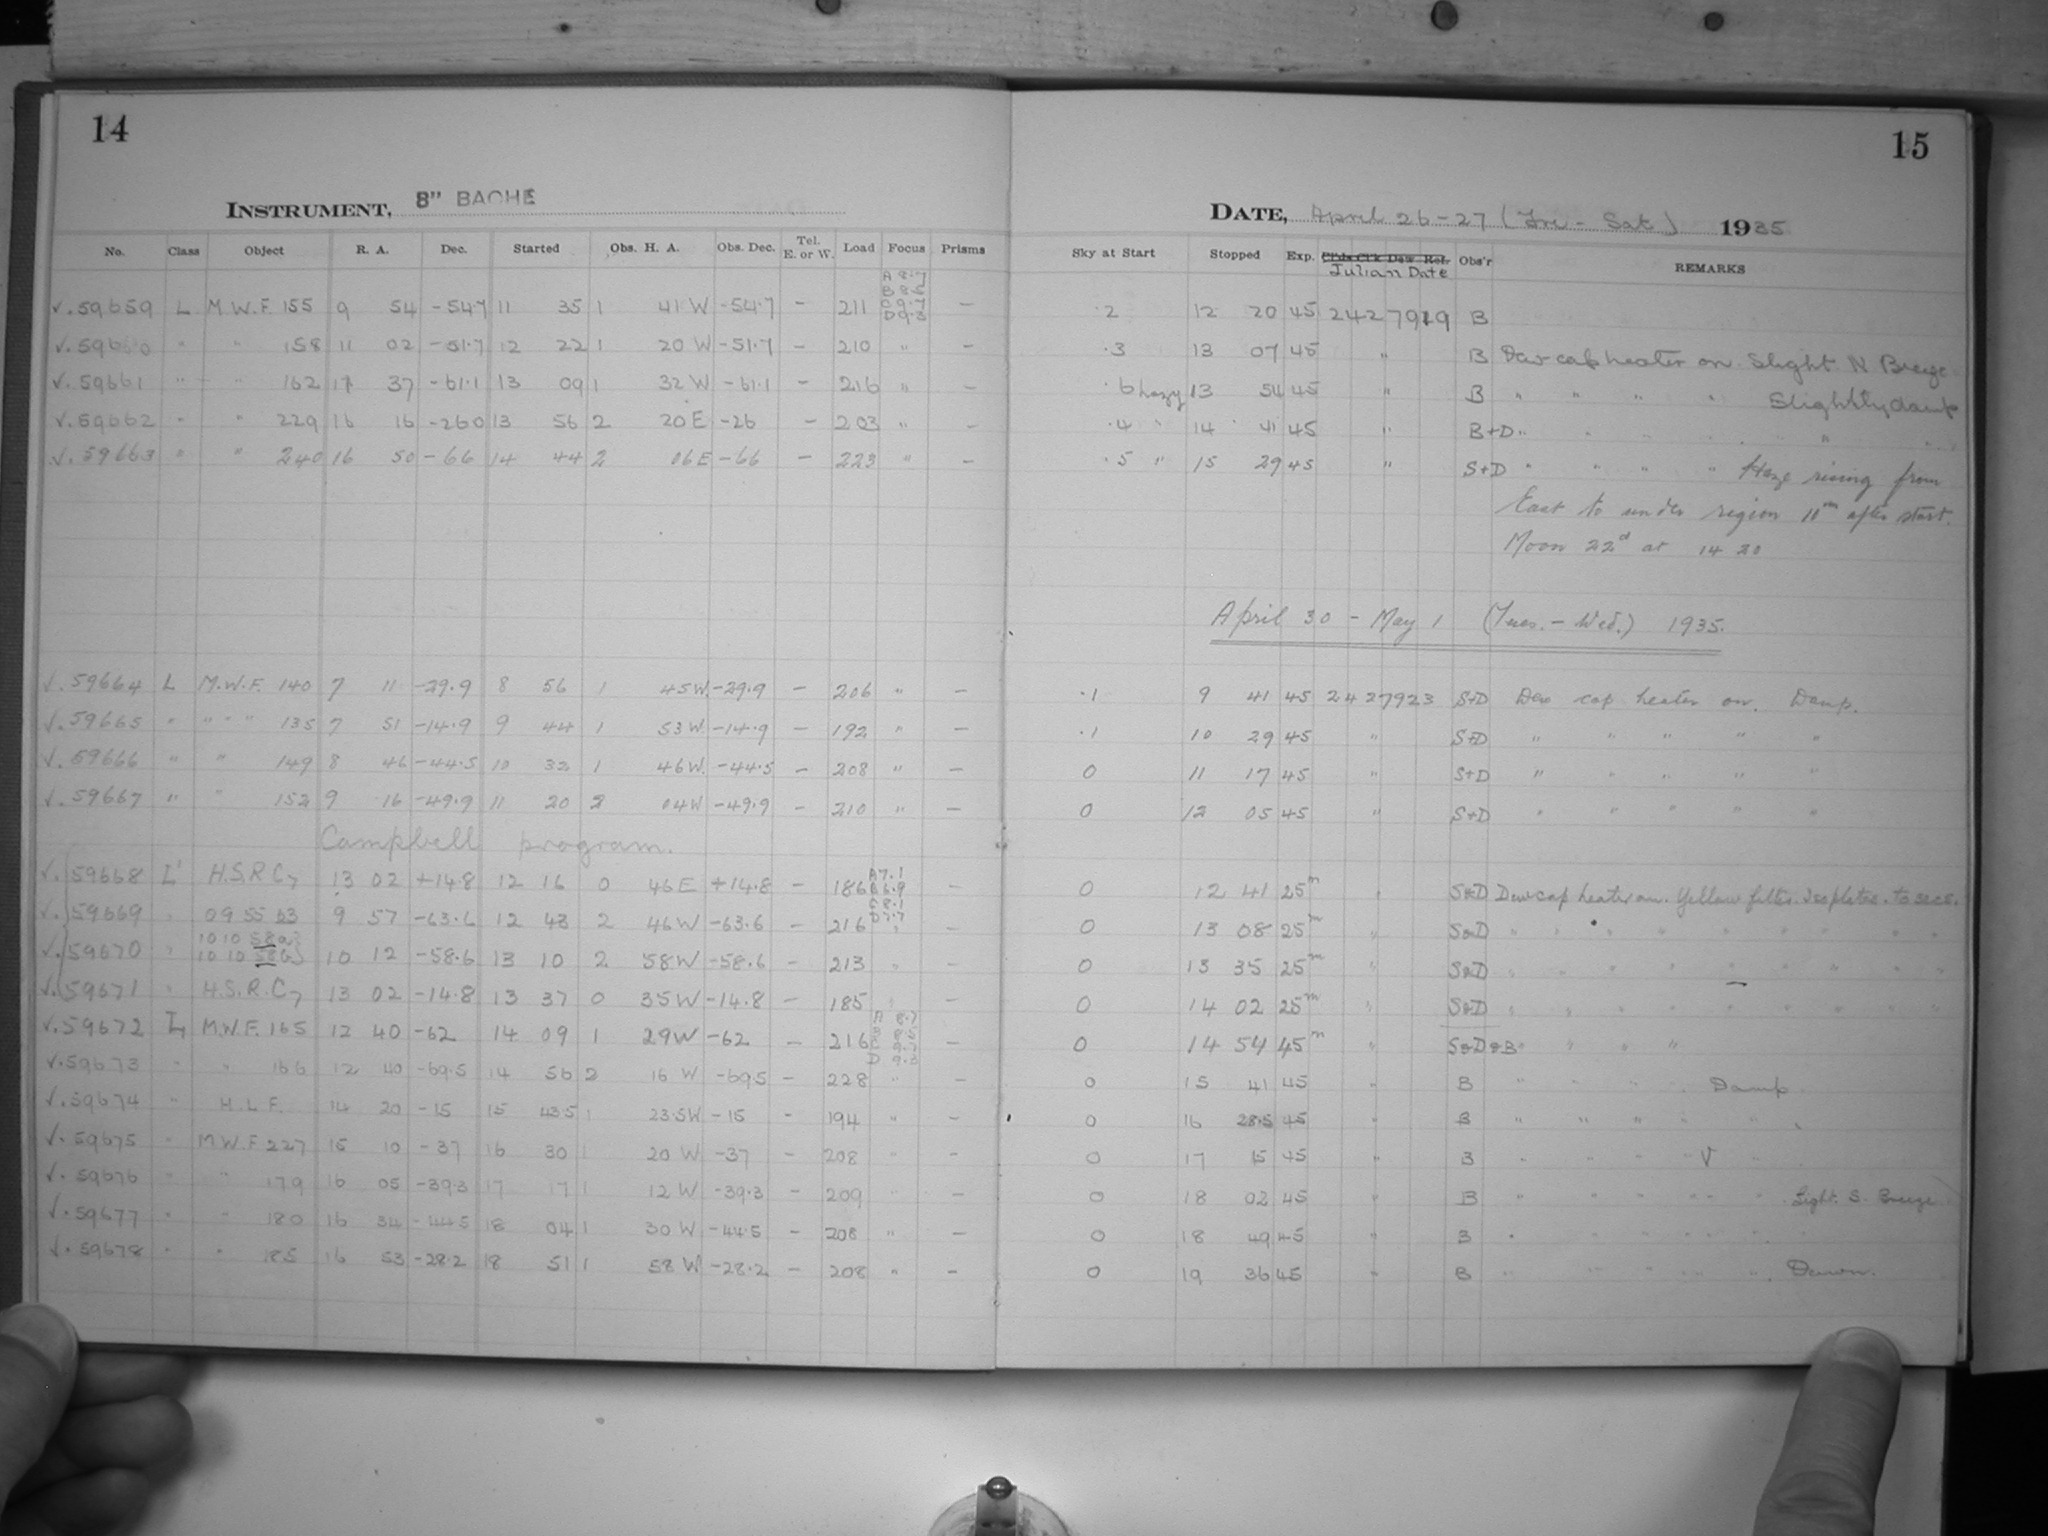 14
INSTRUMENT, 8" BACHE
No. Class Object R. A. Dec. Started Obs. H. A. Obs. Dec. Tel. E. or W. Load Focus Prisms
A 8.7
B 8.6
C 9.7
D 9.3
√. 59659 L M.W.F. 155 9 54 -54.7 11 35 1 41 W -54.7 - 211 -
√. 59660 " " 158 11 02 -51.7 12 22 1 20 W -51.7 - 210 " -
√. 59661 " " 162 37 -61.1 13 09 1 32 W -61.1 - 216 " -
√. 59662 " " 229 16 16 -26.0 13 56 2 20 E -26 - 203 " -
√. 59663 " " 240 16 50 -66 14 44 2 06 E -66 - 223 " -
√. 59664 L M.W.F. 140 7 11 -29.9 8 56 1 45 W. -29.9 - 206 " -
√. 59665 " " " " 135 7 51 -14.9 9 44 1 53 W -14.9 - 192 " -
√. 59666 " " 149 8 46 -44.5 10 32 1 46 W. -44.5 - 208 " -
√. 59667 " " 152 9 16 -49.9 11 20 2 04 W -49.9 - 210 " -
Campbell program.
√. 59668 L' H.S.R.C7 13 02 +14.8 12 16 0 46 E +14.8 - 186 A 7.1 -
√. 59669 " 09 55 63 9 57 -63.6 12 43 2 46 W -63.6 - 216 " -
10 10 58a
√. 59670 " 10 10 58b 10 12 -58.6 13 10 2 58 W -58.6 - 213 " -
√. 59671 " H.S.R.C7 13 02 -14.8 13 37 0 35 W -14.8 - 185 " -
√. 59672 L M.W.F. 165 12 40 -62 14 09 1 29 W -62 - 216 -
√. 59673 " " 166 12 40 -69.5 14 56 2 16 W -69.5 - 228 " -
√. 59674 " H.L.F. 14 20 -15 15 43.5 1 23.5 W -15 - 194 " -
√. 59675 " M.W.F. 227 15 10 -37 16 30 1 20 W -37 - 208 " -
√. 59676 " " 179 16 05 -39.3 17 17 1 12 W -39.3 - 209 " -
√. 59677 " " 180 16 34 -44.5 18 04 1 30 W -44.5 - 208 " -
√. 59678 " " 185 16 53 -28.2 18 51 1 58 W -28.2 - 208 " -
15
DATE, April 26-27 (Fri - Sat) 1935
Sky at Start Stopped Exp. Cl'ds Clk Dew Ref. Julian Date Obs'r REMARKS
.2 12 20 45 2427919 B
.3 13 07 45 " B Dew cap heater on. Slight N Breeze
.6 hazy 13 54 45 " B " " " " Slightly damp
.4 " 14 41 45 " B+D " " " " " "
.5 " 15 29 45 " S+D " " " " Haze rising from
East to under region 11m after start.
Moon 22d at 14 20
April 30 - May 1 (Tues. - Wed.) 1935.
.1 9 41 45 2427923 S+D Dew cap heater on. Damp.
.1 10 29 45 " S+D " " " " "
0 11 17 45 " S+D " " " " "
0 12 05 45 " S+D " " " " "
0 12 41 25m " S&D Dew cap heater on. Yellow filter. Iso plates.
0 13 08 25m " S&D " " " " " " " " "
0 13 35 25m " S&D " " " " " " " " "
0 14 02 25m " S&D " " " " " " " " "
0 14 54 45m " S&D&B " " " "
0 15 41 45 " B " " " " Damp
0 16 28.5 45 " B " " " " "
0 17 15 45 " B " " " V
0 18 02 45 " B " " " " " Light S. Breeze
0 18 49 45 " B " " " " "
0 19 36 45 " B " " " " " Dawn.